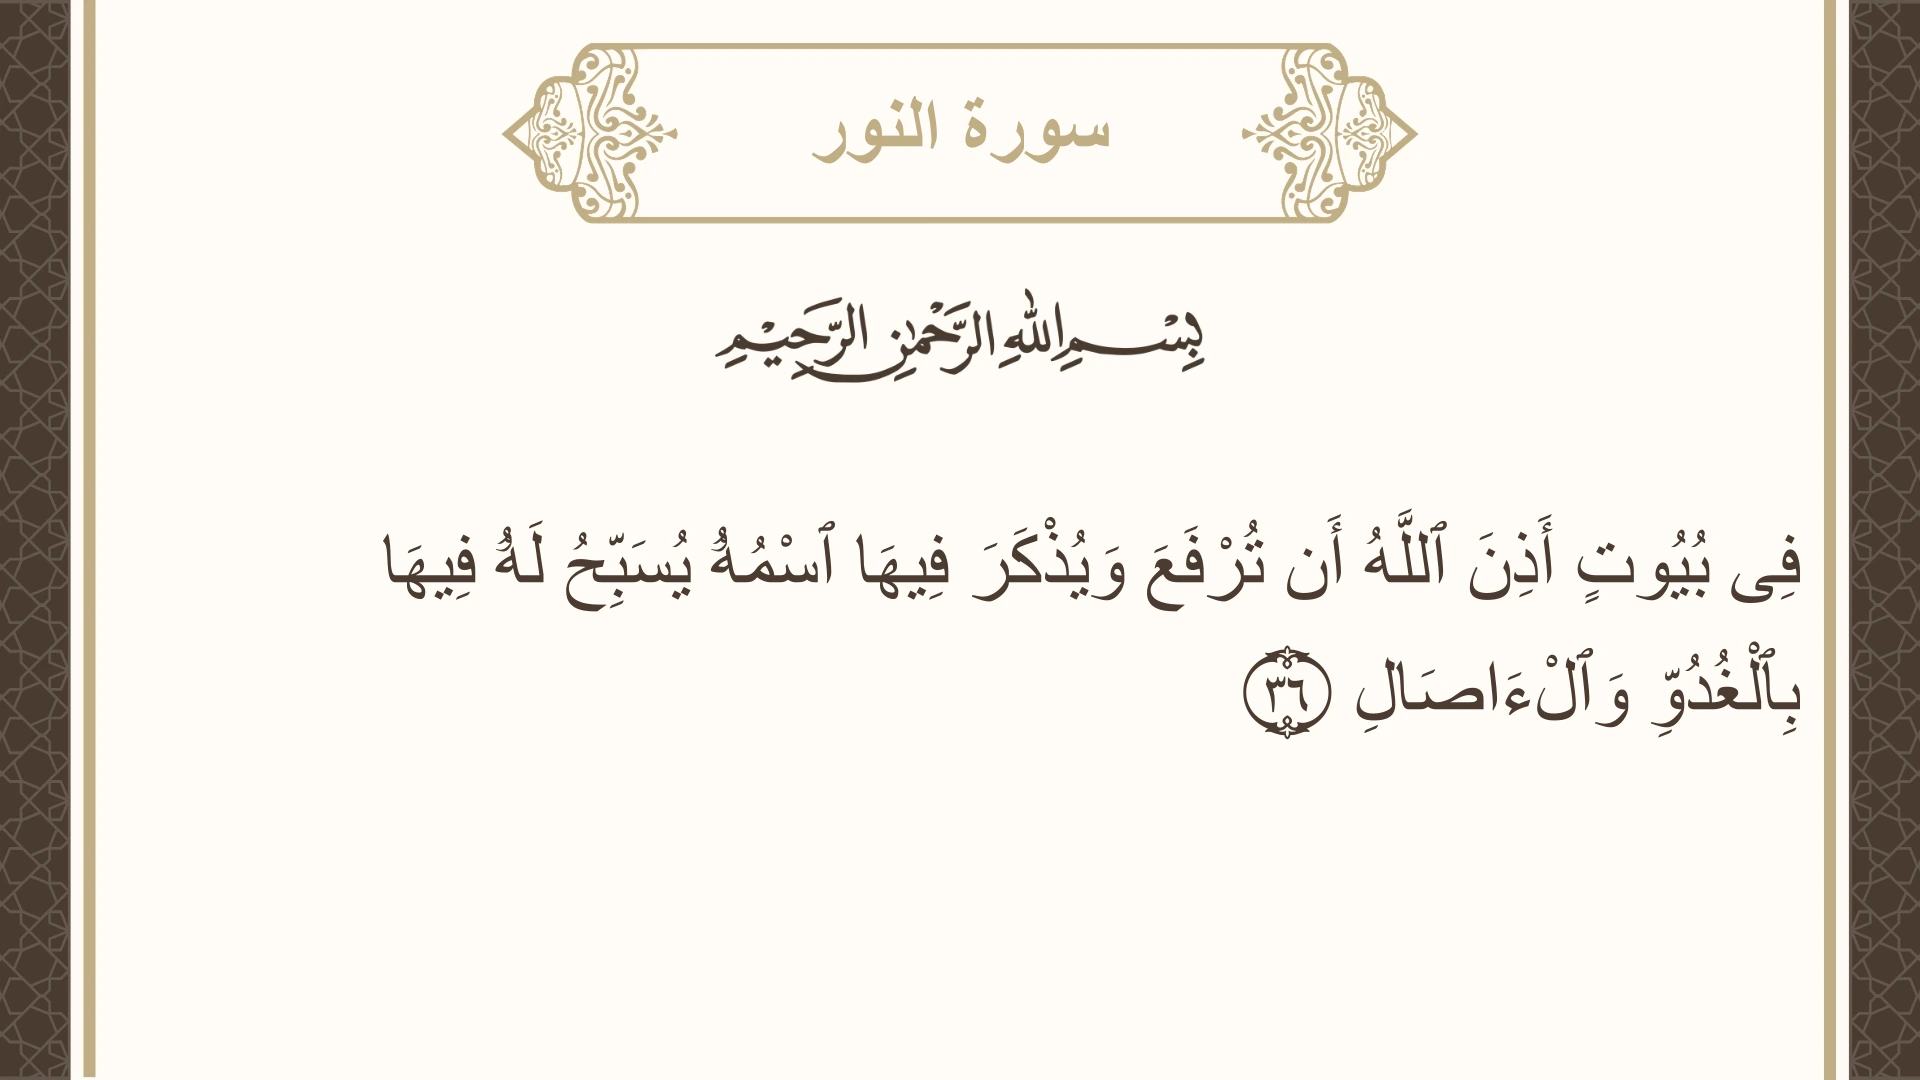 سورة النور
بِسْمِ اللهِ الرَّحْمٰنِ الرَّحِيْمِ
فِى بُيُوتٍ أَذِنَ ٱللَّهُ أَن تُرْفَعَ وَيُذْكَرَ فِيهَا ٱسْمُهُۥ يُسَبِّحُ لَهُۥ فِيهَا
بِٱلْغُدُوِّ وَٱلْءَاصَالِ ٣٦